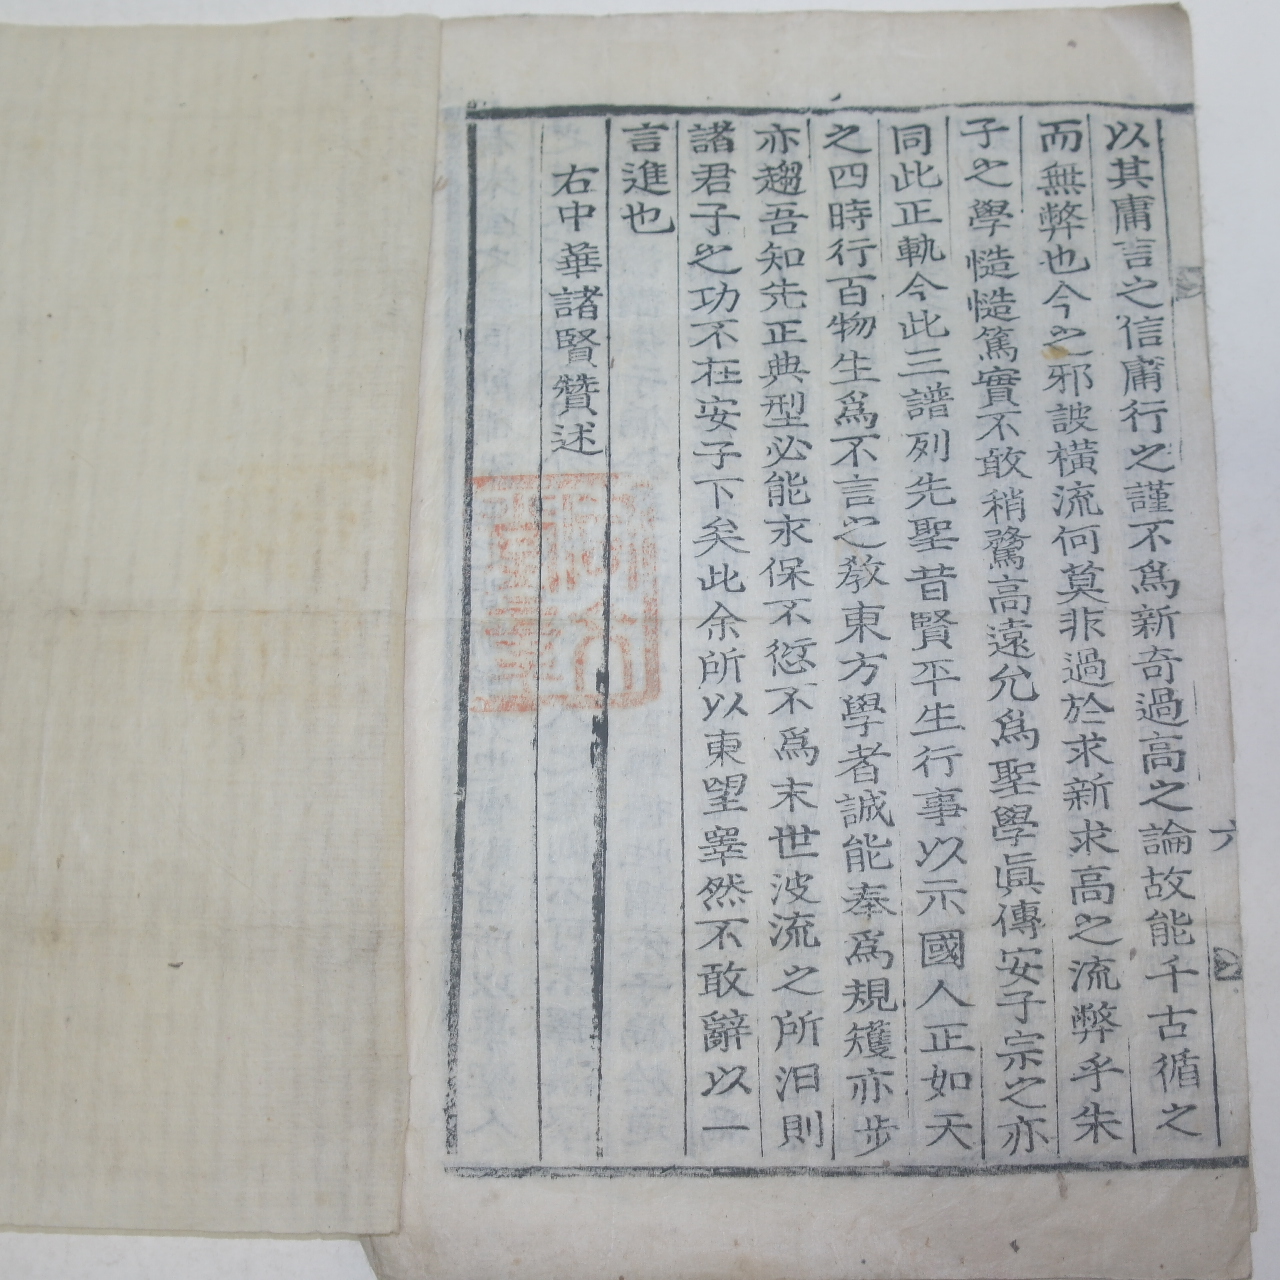 以其庸言之信庸行之謹不爲新奇過高之論故能千古循之
而無弊也今之邪詖橫流何莫非過於求新求高之流弊乎朱
子之學慥慥篤實不敢稍騖高遠允爲聖學眞傳安子宗之亦
同此正軌今此三譜列先聖昔賢平生行事以示國人正如天
之四時行百物生爲不言之教東方學者誠能奉爲規矱亦步
亦趨吾知先正典型必能永保不愆不爲末世波流之所汨則
諸君子之功不在安子下矣此余所以東望睾然不敢辭以一
言進也
右中華諸賢贊述
六